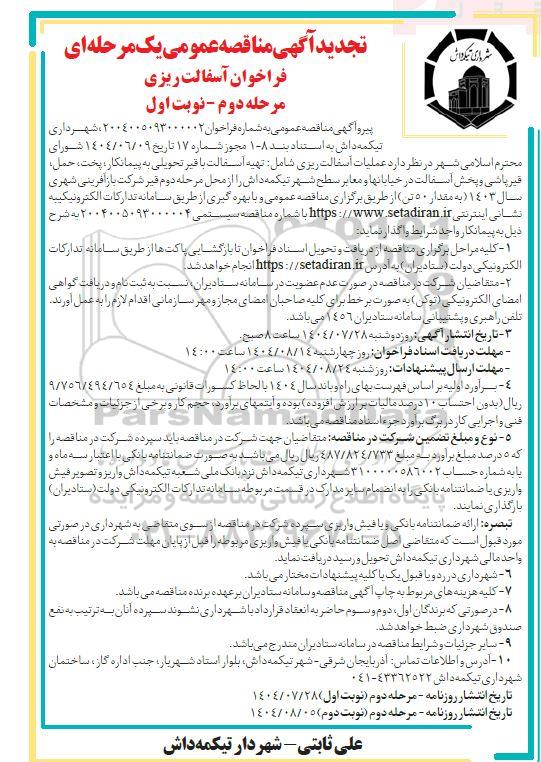 تجدید آگهی مناقصه عمومی یک مرحله‌ای
فراخوان آسفالت ریزی
مرحله دوم - نوبت اول
شهرداری تیکمه‌داش
پیرو آگهی مناقصه عمومی به شماره فراخوان ۲۰۰۴۰۰۵۰۹۳۰۰۰۰۰۲، شهرداری
تیکمه‌داش به استناد بند ۸-۱ مجوز شماره ۱۷ تاریخ ۱۴۰۴/۰۶/۰۹ شورای
محترم اسلامی شهر در نظر دارد عملیات آسفالت ریزی شامل: تهیه آسفالت با قیر تحویلی به پیمانکار، پخت، حمل،
قیرپاشی و پخش آسفالت در خیابانها و معابر سطح شهر تیکمه‌داش را از محل مرحله دوم قیر شرکت بازآفرینی شهری
سال ۱۴۰۳ (به مقدار ۵۰۰ تن) از طریق برگزاری مناقصه عمومی و با بهره گیری از طریق سامانه تدارکات الکترونیکی به
نشانی اینترنتی https://www.setadiran.ir با شماره مناقصه سیستمی ۲۰۰۴۰۰۵۰۹۳۰۰۰۰۰۴ به شرح
ذیل به پیمانکار واجد شرایط واگذار نماید:
۱- کلیه مراحل برگزاری مناقصه از دریافت و تحویل اسناد فراخوان تا بازگشایی پاکت‌ها از طریق سامانه تدارکات
الکترونیکی دولت (ستادیران) به آدرس https://setadiran.ir انجام خواهد شد.
۲- متقاضیان شرکت در مناقصه در صورت عدم عضویت در سامانه ستادیران، نسبت به ثبت نام و دریافت گواهی
امضای الکترونیکی (توکن) به صورت برخط برای کلیه صاحبان امضای مجاز و مهر سازمانی اقدام لازم را به عمل آورند.
تلفن راهبری و پشتیبانی سامانه ستادیران ۱۴۵۶ می‌باشد.
۳- تاریخ انتشار آگهی: روز دوشنبه ۱۴۰۴/۰۷/۲۸ ساعت ۸ صبح.
- مهلت دریافت اسناد فراخوان: روز چهارشنبه ۱۴۰۴/۰۸/۱۴ ساعت ۱۴:۰۰
- مهلت ارسال پیشنهادات: روز شنبه ۱۴۰۴/۰۸/۲۴ ساعت ۱۴:۰۰
۴- برآورد اولیه بر اساس فهرست بهای راه و باند سال ۱۴۰۴ با لحاظ کسورات قانونی به مبلغ ۹/۷۵۶/۴۹۴/۶۵۴
ریال (بدون احتساب ۱۰ درصد مالیات بر ارزش افزوده) بوده و آیتمهای برآورد، حجم کار و برخی از جزئیات و مشخصات
فنی و اجرایی کار در برگ برآورد جزء اسناد مناقصه می‌باشد.
۵- نوع و مبلغ تضمین شرکت در مناقصه: متقاضیان جهت شرکت در مناقصه باید سپرده شرکت در مناقصه را
که ۵ درصد مبلغ برآورد به مبلغ ۴۸۷/۸۲۴/۷۳۳ ریال ریال می‌باشد به صورت ضمانتنامه بانکی با اعتبار سه ماه و
یا به شماره حساب ۳۱۰۰۰۰۰۵۸۶۰۰۲ شهرداری تیکمه‌داش نزد بانک ملی شعبه تیکمه‌داش واریز و تصویر فیش
واریزی یا ضمانتنامه بانکی را به انضمام سایر مدارک در قسمت مربوطه سامانه تدارکات الکترونیکی دولت (ستادیران)
بارگذاری نمایند.
تبصره: ارائه ضمانتنامه بانکی و یا فیش واریزی سپرده شرکت در مناقصه از سوی متقاضی به شهرداری در صورتی
مورد قبول است که متقاضی اصل ضمانتنامه بانکی یا فیش واریزی مربوطه را قبل از پایان مهلت شرکت در مناقصه به
واحد مالی شهرداری تیکمه‌داش تحویل و رسید دریافت نماید.
۶- شهرداری در رد و یا قبول یک یا کلیه پیشنهادات مختار می‌باشد.
۷- کلیه هزینه های مربوط به چاپ آگهی مناقصه و سامانه ستادیران بر عهده برنده مناقصه می‌باشد.
۸- در صورتی که برندگان اول، دوم و سوم حاضر به انعقاد قرارداد با شهرداری نشوند سپرده آنان به ترتیب به نفع
صندوق شهرداری ضبط خواهد شد.
۹- سایر جزئیات و شرایط مناقصه در سامانه ستادیران مندرج می‌باشد.
۱۰- آدرس و اطلاعات تماس: آذربایجان شرقی - شهر تیکمه‌داش، بلوار استاد شهریار، جنب اداره گاز، ساختمان
شهرداری تیکمه‌داش ۴۳۳۶۲۵۲۲-۰۴۱
تاریخ انتشار روزنامه - مرحله دوم (نوبت اول) ۱۴۰۴/۰۷/۲۸
تاریخ انتشار روزنامه - مرحله دوم (نوبت دوم) ۱۴۰۴/۰۸/۰۵
علی ثابتی - شهردار تیکمه‌داش